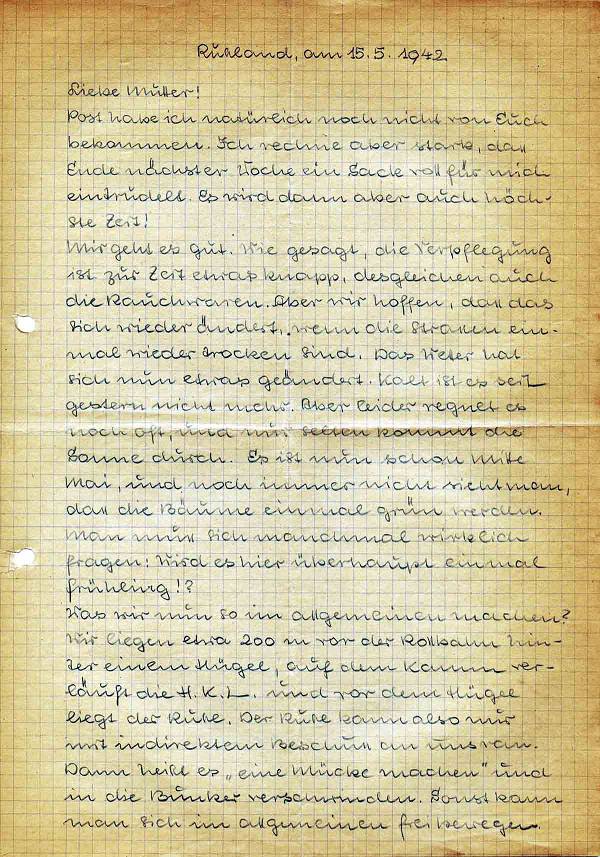 Rußland, am 15.5.1942
Liebe Mutter!
Post habe ich natürlich noch nicht von Euch
bekommen. Ich rechne aber stark, daß
Ende nächster Woche ein Sack voll für mich
eintrudelt. Es wird dann aber auch höch-
ste Zeit!
Mir geht es gut. Wie gesagt, die Verpflegung
ist zur Zeit etwas knapp, desgleichen auch
die Rauchwaren. Aber wir hoffen, daß das
sich wieder ändert, wenn die Straßen ein-
mal wieder trocken sind. Das Wetter hat
sich nun etwas geändert. Kalt ist es seit
gestern nicht mehr. Aber leider regnet es
noch oft, und nur selten kommt die
Sonne durch. Es ist nun schon Mitte
Mai, und noch immer nicht sieht man,
daß die Bäume einmal grün werden.
Man muß sich manchmal wirklich
fragen: Wird es hier überhaupt einmal
Frühling!?
Was wir nun so im allgemeinen machen?
Wir liegen etwa 200 m vor der Rollbahn hin-
ter einem Hügel, auf dem Kamm ver-
läuft die H.K.L. und vor dem Hügel
liegt der Ruße. Der Ruße kann also nur
mit indirektem Beschuß an uns ran.
Dann heißt es „eine Mücke machen" und
in die Bunker verschwinden. Sonst kann
man sich im allgemeinen frei bewegen.